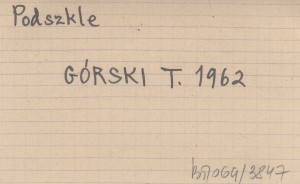 Podszkle
GÓRSKI T. 1962
BTOGG/3847